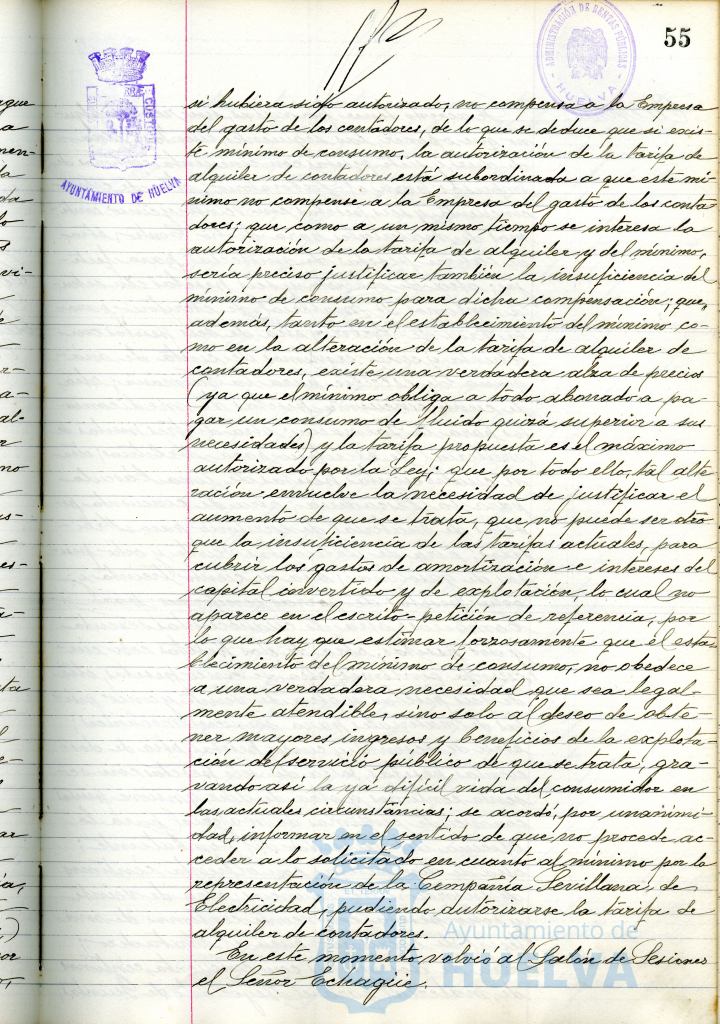 55
ADMINISTRACIÓN DE RENTAS PÚBLICAS
HUELVA
AYUNTAMIENTO DE HUELVA
si hubiera sido autorizado, no compensa a la Empresa
del gasto de los contadores, de lo que se deduce que si exis-
te mínimo de consumo, la autorización de la tarifa de
alquiler de contadores está subordinada a que este mí-
nimo no compense a la Empresa del gasto de los conta-
dores; que como a un mismo tiempo se interesa la
autorización de la tarifa de alquiler y del mínimo,
sería preciso justificar también la insuficiencia del
mínimo de consumo para dicha compensación; que,
además, tanto en el establecimiento del mínimo co-
mo en la alteración de la tarifa de alquiler de
contadores, existe una verdadera alza de precios
(ya que el mínimo obliga a todo abonado a pa-
gar un consumo de fluido quizá superior a sus
necesidades) y la tarifa propuesta es el máximo
autorizado por la Ley; que por todo ello, tal alte-
ración envuelve la necesidad de justificar el
aumento de que se trata, que no puede ser otro
que la insuficiencia de las tarifas actuales, para
cubrir los gastos de amortización e intereses del
capital invertido y de explotación, lo cual no
aparece en el escrito-petición de referencia, por
lo que hay que estimar forzosamente que el esta-
blecimiento del mínimo de consumo, no obedece
a una verdadera necesidad que sea legal-
mente atendible, sino solo al deseo de obte-
ner mayores ingresos y beneficios de la explota-
ción del servicio público de que se trata, gra-
vando así la ya difícil vida del consumidor en
las actuales circunstancias; se acordó, por unanimi-
dad, informar en el sentido de que no procede ac-
ceder a lo solicitado en cuanto al mínimo por la
representación de la Compañía Sevillana de
Electricidad, pudiendo autorizarse la tarifa de
alquiler de contadores.
En este momento, volvió al Salón de Sesiones
el Señor Echagüe.
Ayuntamiento de
HUELVA